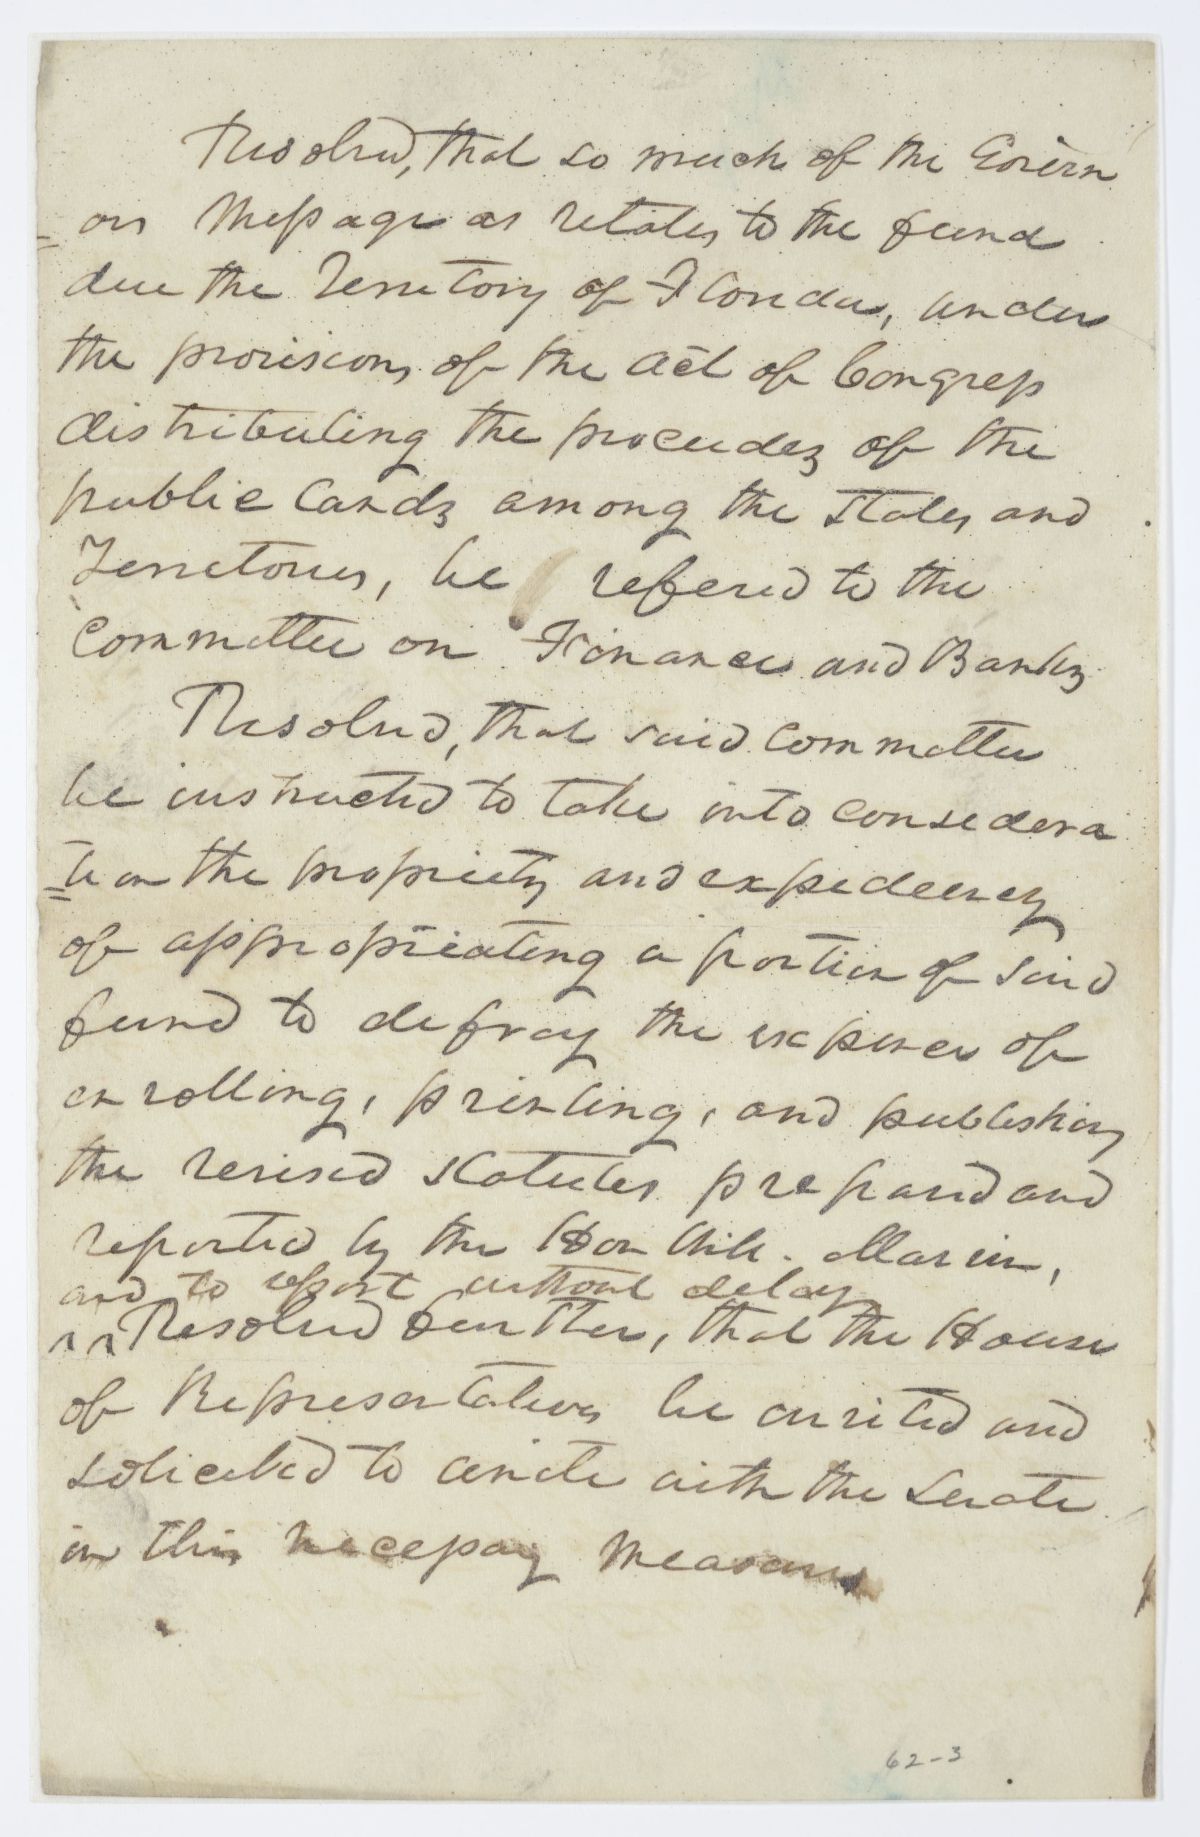 Resolved, that so much of the Govern
=ors Message as relates to the fund
due the Territory of Florida, under
the provisions of the act of Congress
distributing the proceedes of the
public Lands among the States and
Territories, be refered to the
Committee on Finance and Banks
Resolved, that said committee
be instructed to take into considera
=tion the propriety and expediency
of appropriating a portion of said
fund to defray the expense of
enrolling, printing, and publishing
the revised statutes prepared and
reported by the Hon Marvin,
and to report without delay
Resolved further, that the House
of Representatives be invited and
solicited to unite with the Senate
in this necessary measure
62-3